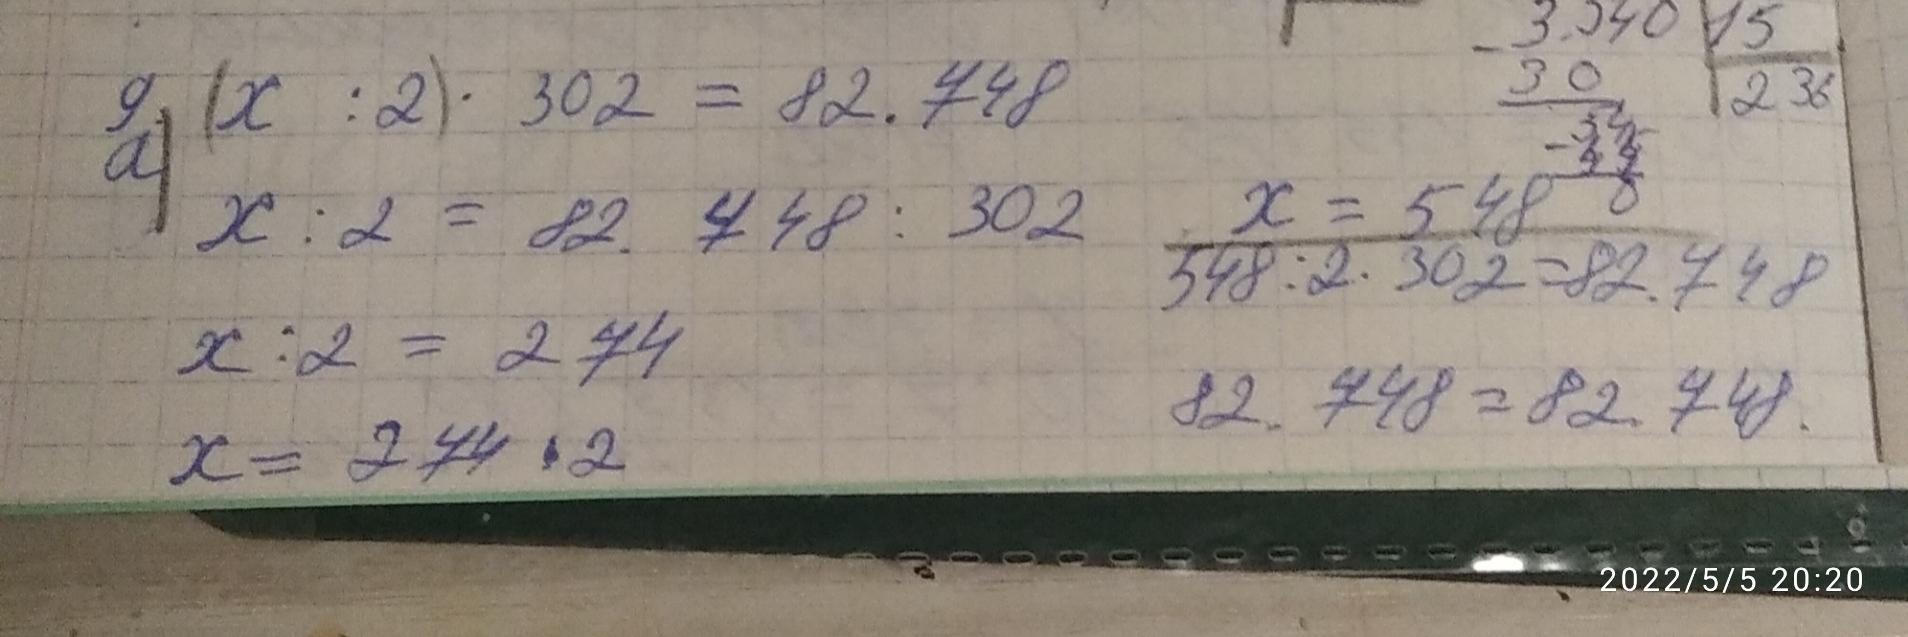 9. (x : 2) · 302 = 82.748
a)
x : 2 = 82.748 : 302
x : 2 = 274
x = 274 · 2
3.540 15
- 30 236
x = 548
548 : 2 · 302 = 82.748
82.748 = 82.748.
2022/5/5 20:20